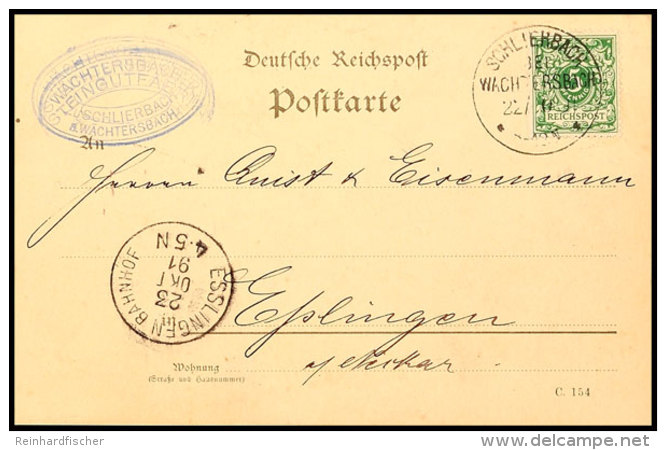 Deutsche Reichspost
Postkarte
WÄCHTERSBACHER
STEINGUTFABRIK
SCHLIERBACH
B. WÄCHTERSBACH
SCHLIERBACH
BEI
WÄCHTERSBACH
REICHSPOST
An
Herren Quist & Eisenmann
ESSLINGEN BAHNHOF
23
OKT
91
4-5 N
Eßlingen
a/Neckar
Wohnung
(Straße und Hausnummer)
C. 154
Reinhardfischer
delcampe.net